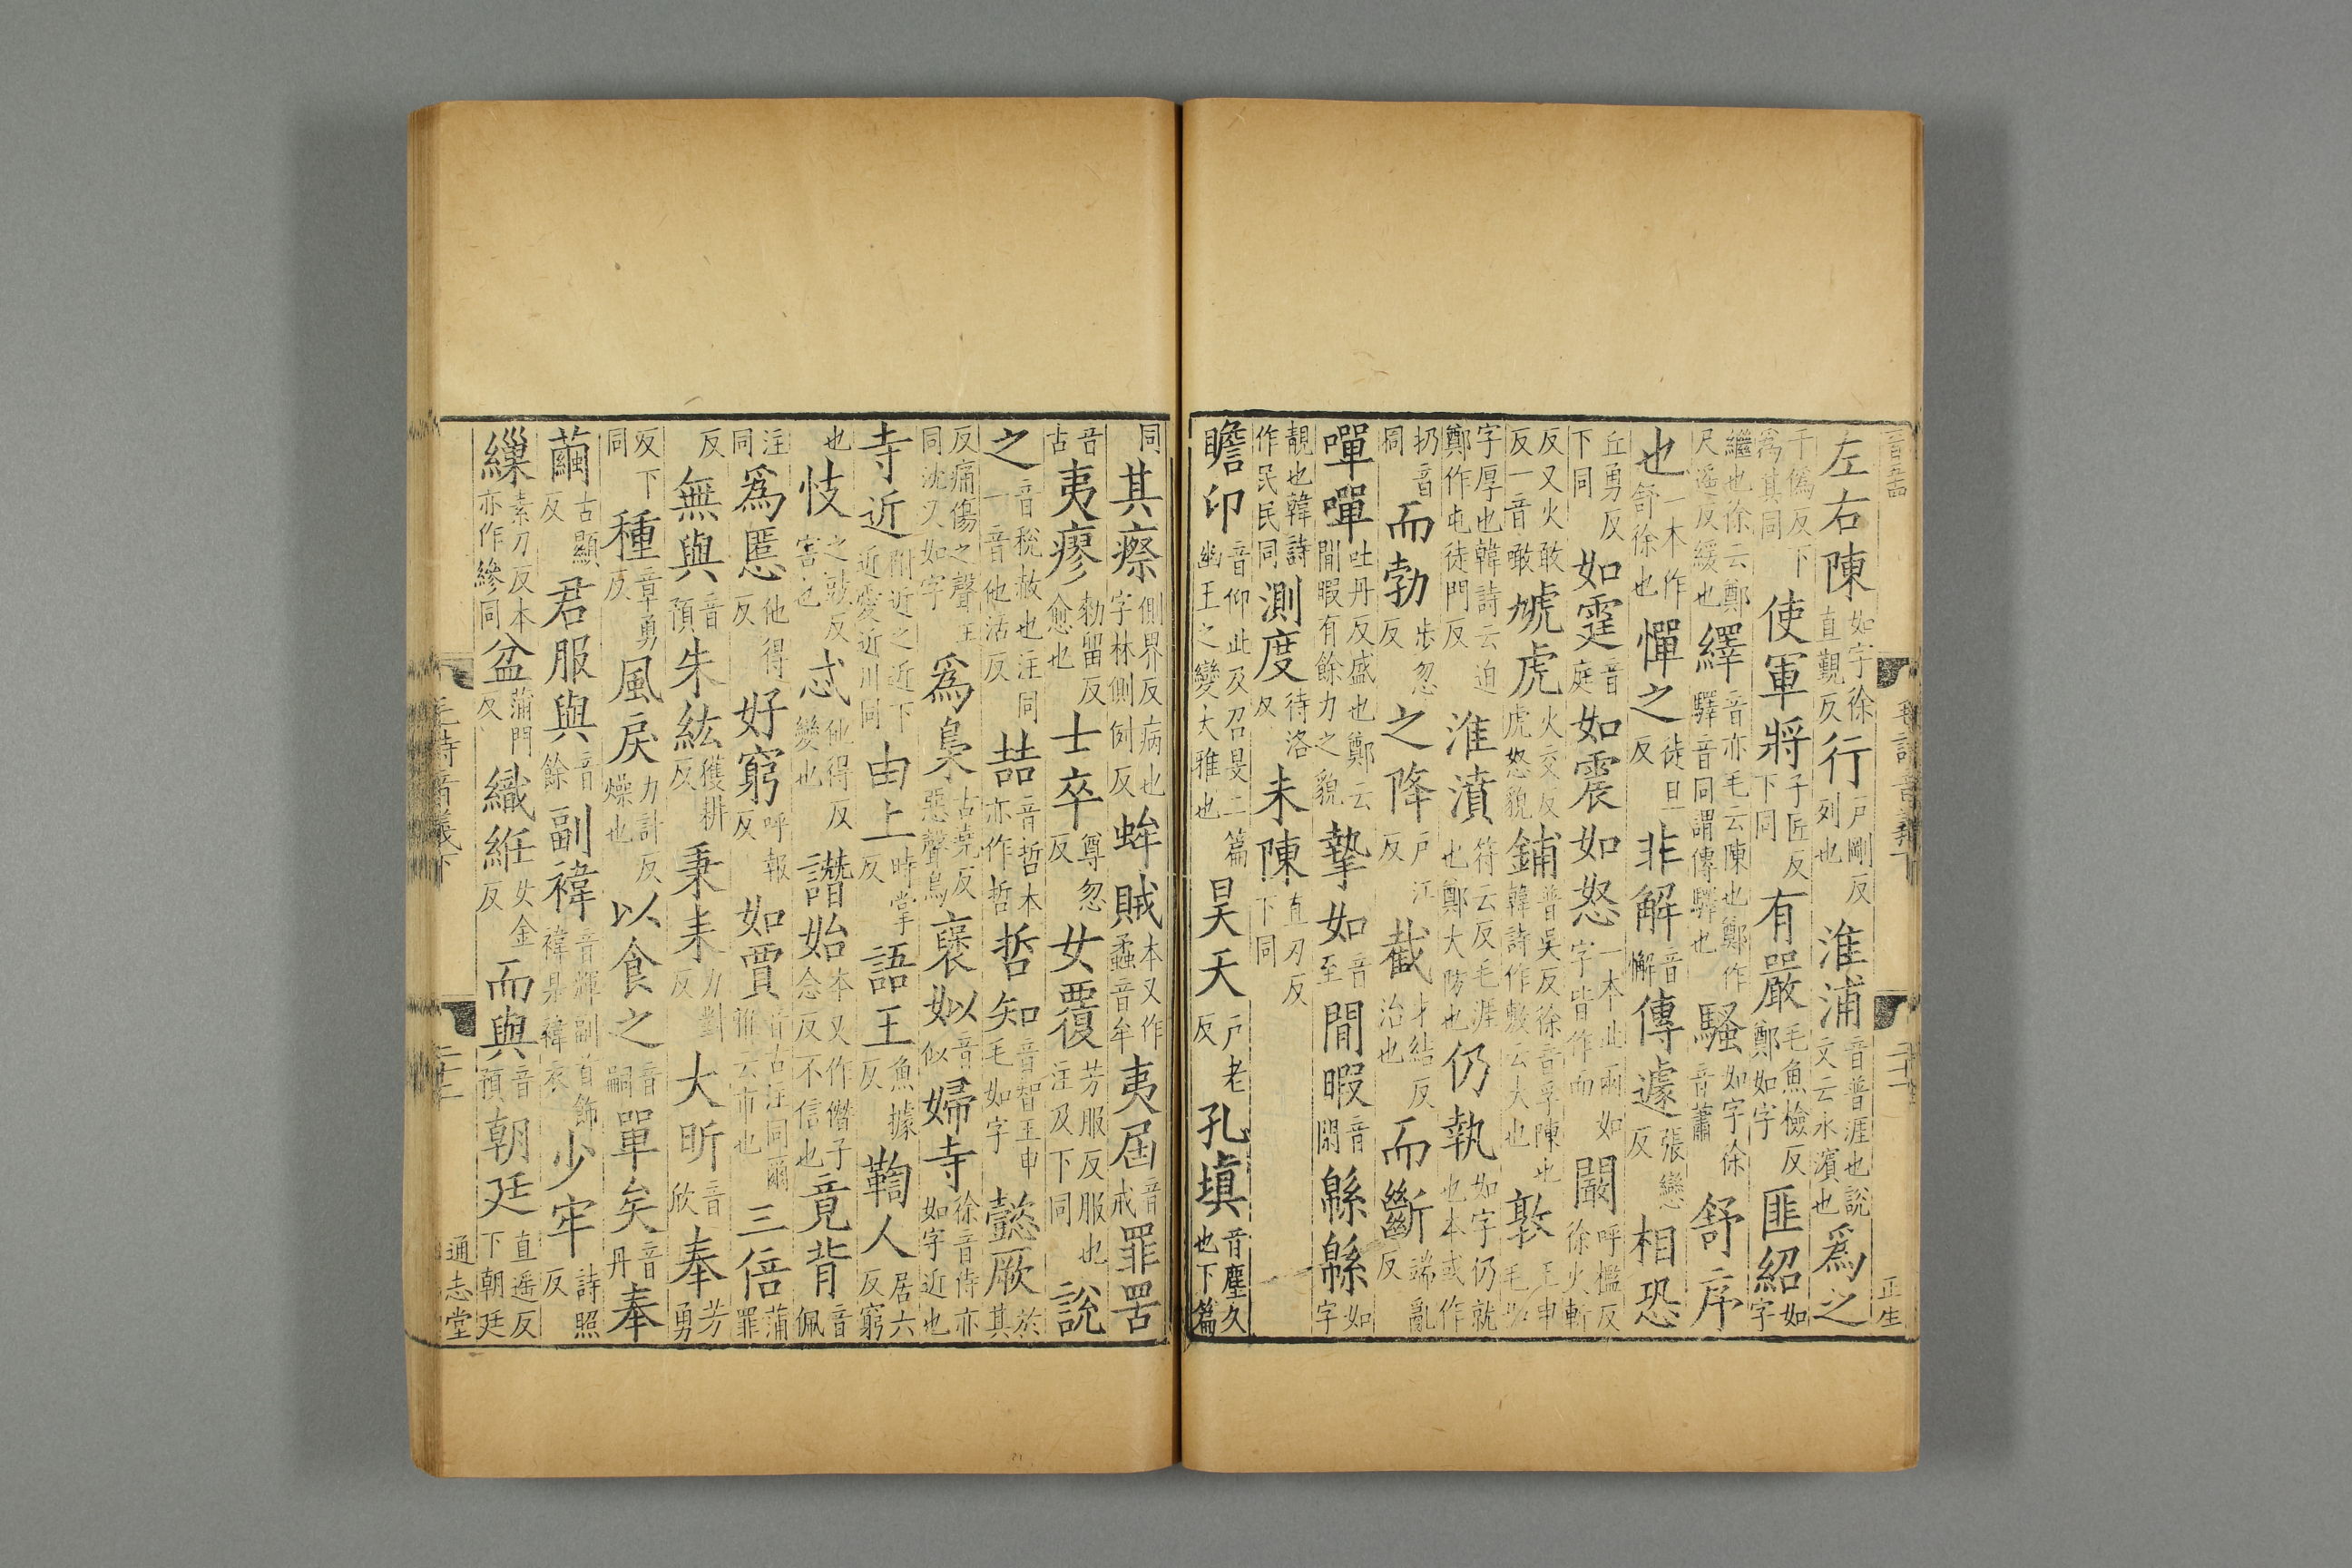 左右陳如字徐直覲反行戶剛反列也淮浦音普涯也說文云水濱也爲之
于僞反下爲其同使軍將子匠反下同有嚴毛魚檢反鄭如字匪紹如字
繼也徐云鄭尺遥反緩也繹音亦毛云陳也鄭作驛音同謂傳驛也騷如字徐音蕭舒序
也一本作舒徐也憚之徒旦反非解音懈傳遽張戀反相恐
丘勇反下同如霆音庭如震如怒一本此兩如字皆作而闞呼檻反徐火斬
反又火敢反一音噉虓虎火交反虎怒貌鋪普吳反徐音孚陳也韓詩作敷云大也敦王申毛如
字厚也韓詩云迫鄭作屯徒門反淮濆符云反毛涯也鄭大防也仍執如字仍就也本或作
扔音同而勃步忽反之降戶江反截才結反治也而斷端亂反
嘽嘽吐丹反盛也鄭云閒暇有餘力之貌摯如音至閒暇音閑緜緜如字
靚也韓詩作民民同測度待洛反未陳直刃反下同
瞻卬音仰此及召旻二篇幽王之變大雅也昊天戶老反孔填音塵久也下篇
同其瘵側界反病也字林側例反蛑賊本又作蟊音牟夷屆音戒罪罟
音古夷瘳勑留反愈也士卒尊忽反女覆芳服反服也注及下同說
之音稅赦也注同一音他活反喆音哲本亦作哲哲知音智王申毛如字懿厥於其
反痛傷之聲王同沈又如字爲梟古堯反惡聲鳥襃姒音似婦寺徐音侍亦如字近也
寺近附近之近下近愛近川同由上時掌反語王魚據反鞫人居六反窮
也忮之豉反害也忒他得反變也譖始本又作僭子念反不信也竟背音佩
注同爲慝他得反好窮呼報反如賈音古注同爾雅云市也三倍蒲罪
反無與音預朱紘獲耕反秉耒力對反大昕音欣奉芳勇
反下同種章勇反風戾力計反燥也以食之音嗣單矣音丹奉
繭古顯反君服與音餘副褘音輝副首飾褘畢褘衣少牢詩照反
繅素刀反本亦作縿同盆蒲門反織紝女金反而與音預朝廷直遥反下朝廷
毛詩音義下
二十二
通志堂